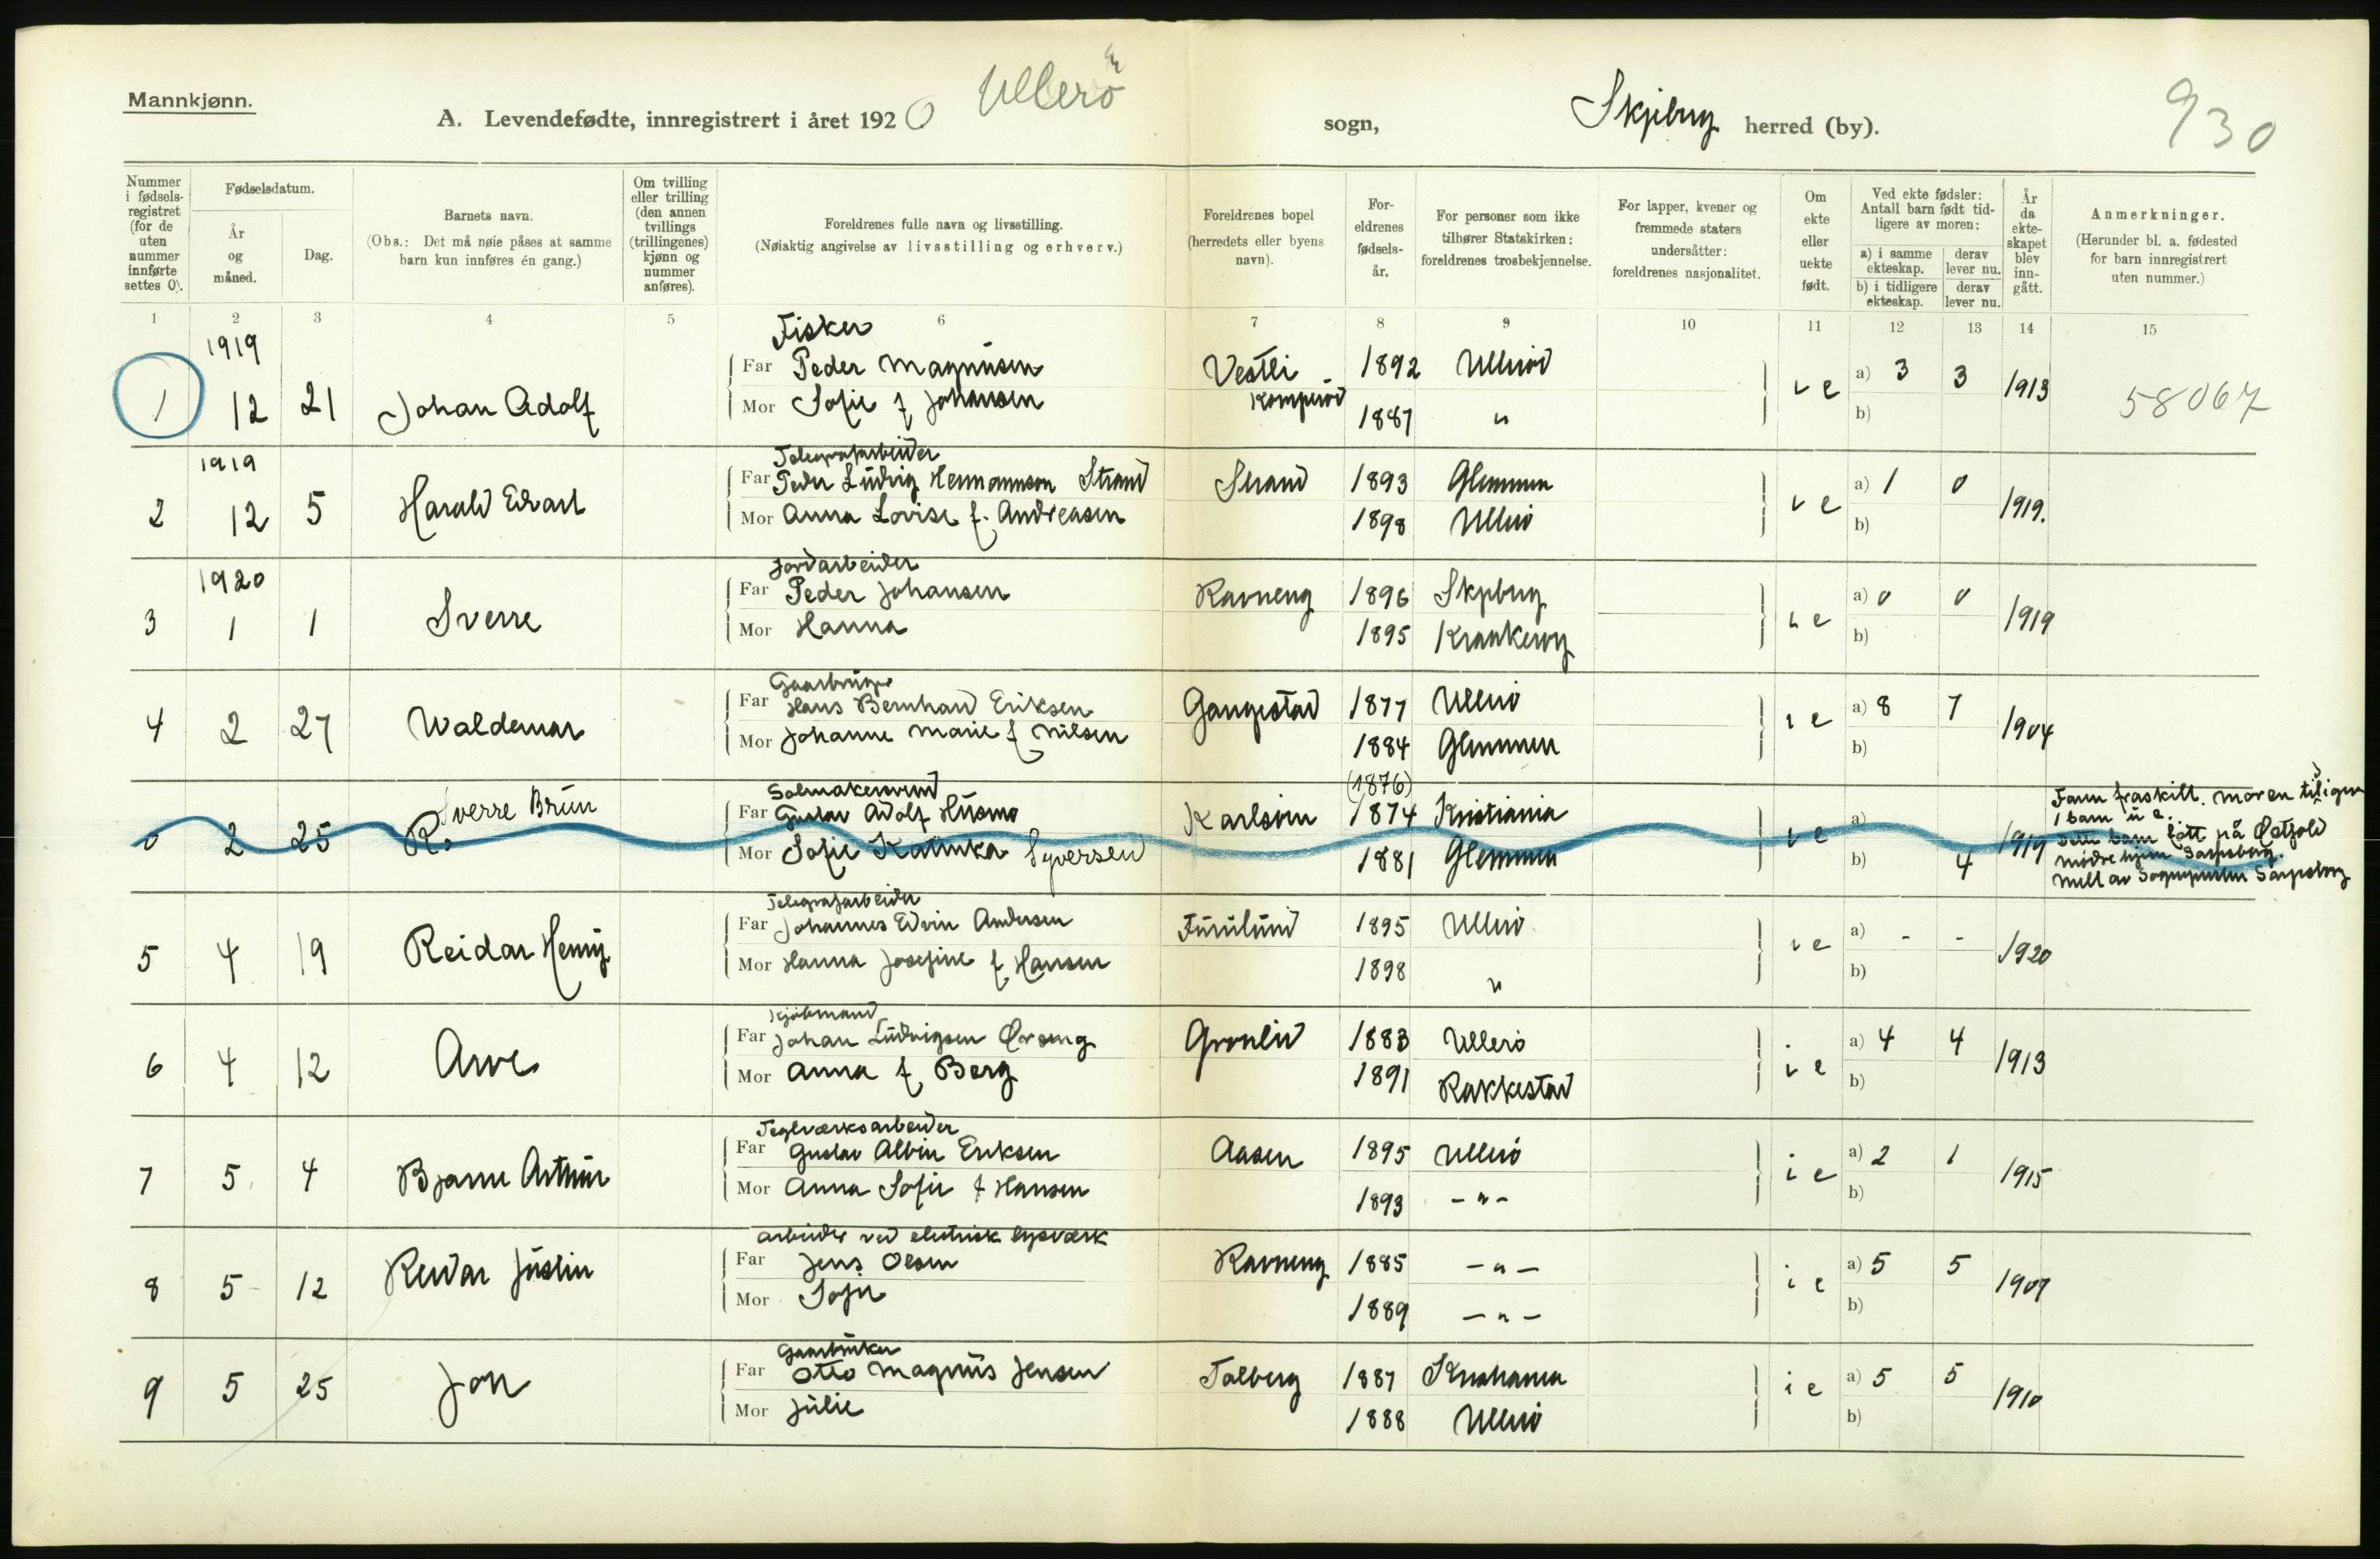 Mannkjønn.
A. Levendefødte, innregistrert i året 1920 Ullerö sogn, Skjebug herred (by). 930
Nummer i fødsels-registret (for de uten nummer innførte settes 0).
Fødselsdatum.
År og måned.
Dag.
Barnets navn.
(Obs.: Det må nøie påses at samme barn kun innføres én gang.)
Om tvilling eller trilling (den annen tvillings (trillingenes) kjønn og nummer anføres).
Foreldrenes fulle navn og livsstilling.
(Nøiaktig angivelse av livsstilling og erhverv.)
Foreldrenes bopel (herredets eller byens navn).
For-eldrenes fødsels-år.
For personer som ikke tilhører Statskirken: foreldrenes trosbekjennelse.
For lapper, kvener og fremmede staters undersåtter: foreldrenes nasjonalitet.
Om ekte eller uekte født.
Ved ekte fødsler: Antall barn født tid-ligere av moren:
a) i samme ekteskap. derav lever nu.
b) i tidligere ekteskap. derav lever nu.
År da ekte-skapet blev inn-gått.
Anmerkninger.
(Herunder bl. a. fødested for barn innregistrert uten nummer.)
1 2 3 4 5 6 7 8 9 10 11 12 13 14 15
1919 Fisker
Far Peder Magnusen Vestli 1892 Ullerö a) 3 3
1 12 21 Johan Adolf e 1913 58067
Mor Sofie f Johansen 1887 " b)
1919 Telegrafarbeider
Far Peder Ludvig Hermannson Strand Strand 1893 Glemmen a) 1 0
2 12 5 Harald Edvart e 1919.
Mor Anna Lovise f. Andreasen 1898 Ullerö b)
1920 Jordarbeider
Far Peder Johansen Ravneng 1896 Skjebrg a) 0 0
3 1 1 Sverre e 1919
Mor Hanna 1895 Kraakeröy b)
Gaardbruger
Far Hans Bernhard Eriksen Gangestad 1877 Ullerö a) 8 7
4 2 27 Waldemar e 1904
Mor Johanne Marie f Nilsen 1884 Glemmen b)
Sverre Brun (1876)
Far Gustav Adolf Husmo 1874 Kristiania a)
0 2 25 R. e 1919
Mor Sofie Katinka Syversen 1881 Glemmen b) 4
Faren fraskilt. moren tidligere
1 barn u e.
Dette barn født på
mödrehjem Sarpsborg.
Sarpsborg
Telegrafarbeider
Far Johannes Edvin Andersen Furulund 1895 Ullerö a) - -
5 4 19 Reidar Henry e 1920
Mor Hanna Josefine f Hansen 1898 " b)
Kjöbmand
Far Johan Ludvigsen Grönli 1883 Ullerö a) 4 4
6 4 12 Arve i e 1913
Mor Anna f Berg 1891 Rakkestad b)
Teglværksarbeider
Far Gustav Albin Eriksen Aasen 1895 Ullerö a) 2 1
7 5 4 Bjarne Arthur i e 1915
Mor Anna Sofie f Hansen 1893 - " - b)
arbeider ved elektrisk lysværk
Far Jens Olsen Ravneng 1885 - " - a) 5 5
8 5 12 Reidar Justin i e 1907
Mor Sofie 1889 - " - b)
Gaardbruker
Far Otto Magnus Jensen Talberg 1887 Kristiania a) 5 5
9 5 25 Jon i e 1910
Mor Julie 1888 Ullerö b)